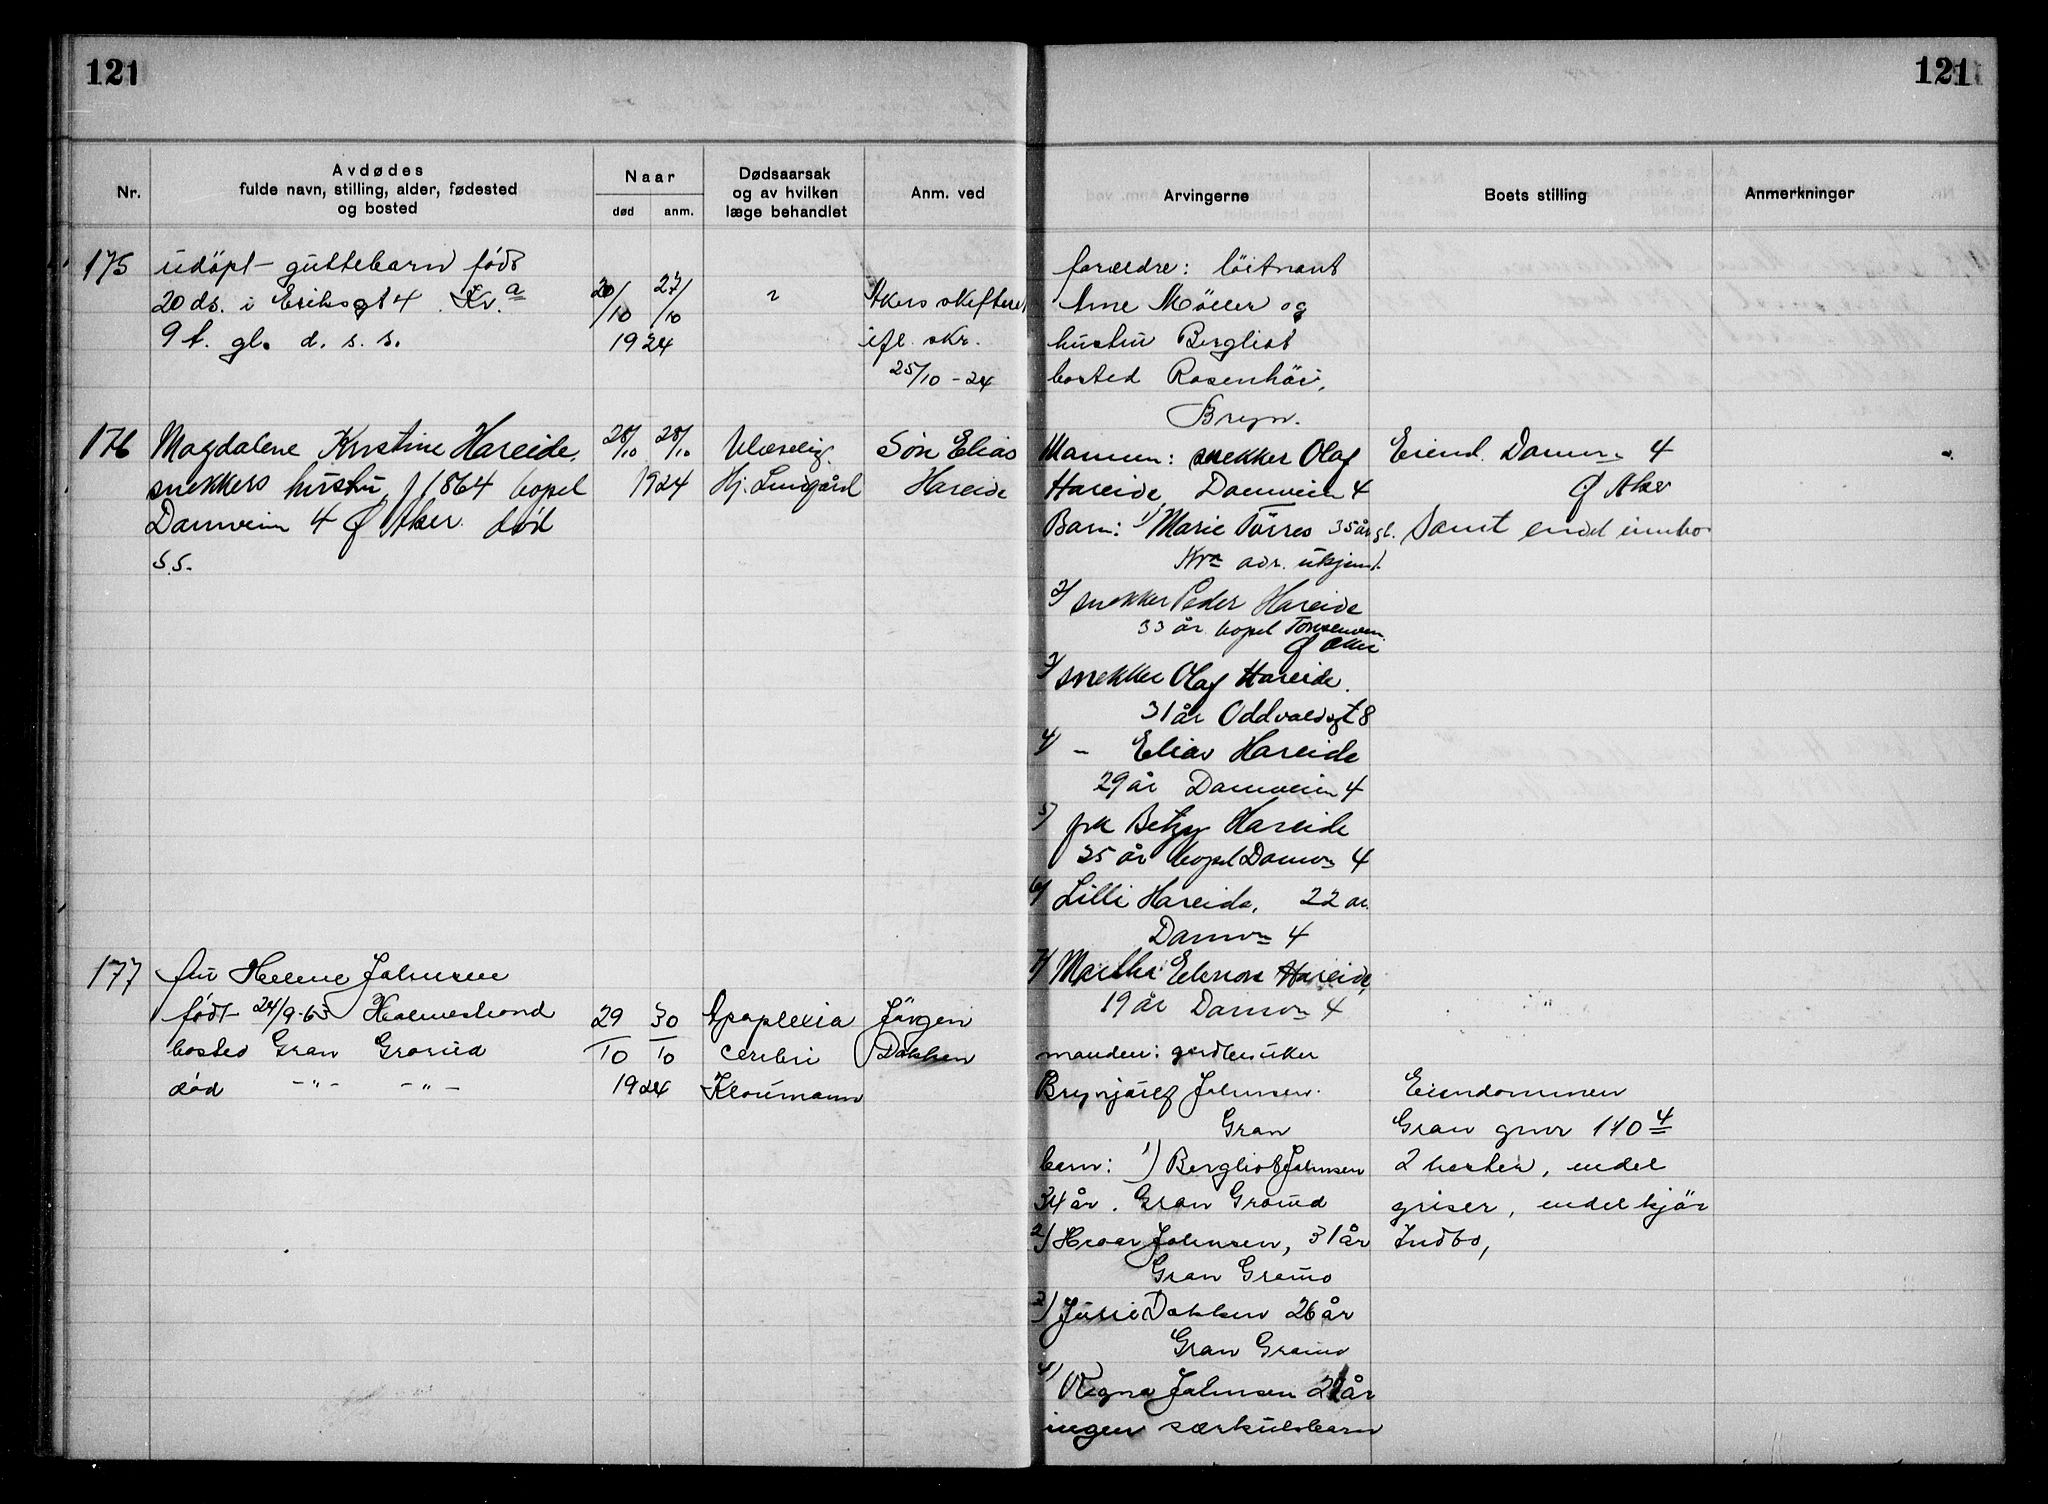 121
121
Nr.
Avdødes
fulde navn, stilling, alder, fødested
og bosted
Naar
død
anm.
Dødsaarsak
og av hvilken
læge behandlet
Anm. ved
Arvingerne
Boets stilling
Anmerkninger
175
udöpt guttebarn født
20 ds. i Eriksgt 4. Kr.a
9 t. gl. d. s. s.
20/10 27/10
1924
?
Akers skifteret
ifl. skr.
25/10 - 24
forældre: löitnant
Arne Möller og
hustru Bergliot
bosted Rosenhöi,
Bryn.
176
Magdalene Kristine Hareide,
snekkers hustru, f 1864 bopel
Damveien 4 Ø Aker. död
s.s.
28/10 28/10
1924
Hj. Lindgård
Sön Elias
Hareide
Mannen: snekker Olaf
Hareide, Damveien 4
Barn: 1) Marie Törres 35 år gl.
Kra adr. ukjent.
2) snekker Peder Hareide
33 år. bopel Tonsenvn.
Ø Aker
3) snekker Olaf Hareide.
31 år Oddvaldsgt 8
4) - Elias Hareide
29 år Damveien 4
5) frk Betzy Hareide
25 år bopel Damvn 4
6) Lilli Hareide, 22 år.
Damvn 4
7) Martha Elenora Hareide,
19 år Damvn 4
Eiend. Damvn 4
Ø Aker
Samt endel innbo
177
fru Helene Johnsen
født 24/9-63 Holmestrand
bosted Gran Grorud
död -"- -"-
29/10 30/10
1924
Apoplexia
cerebri
Kloumann
Jörgen
Dokken
manden: gårdbruker
Brynjulf Johnsen.
Gran
barn: 1) Bergliot Johnsen
34 år. Gran Grorud
2) Hroar Johnsen, 31 år
Gran Grorud
3) Julie Dokken 26 år
Gran Grorud
4) Ragna Johnsen 21 år
ingen særkulsbarn
Eiendommen
Gran gnr 110 4
2 hester, endel
griser, endel kjör
Indbo,